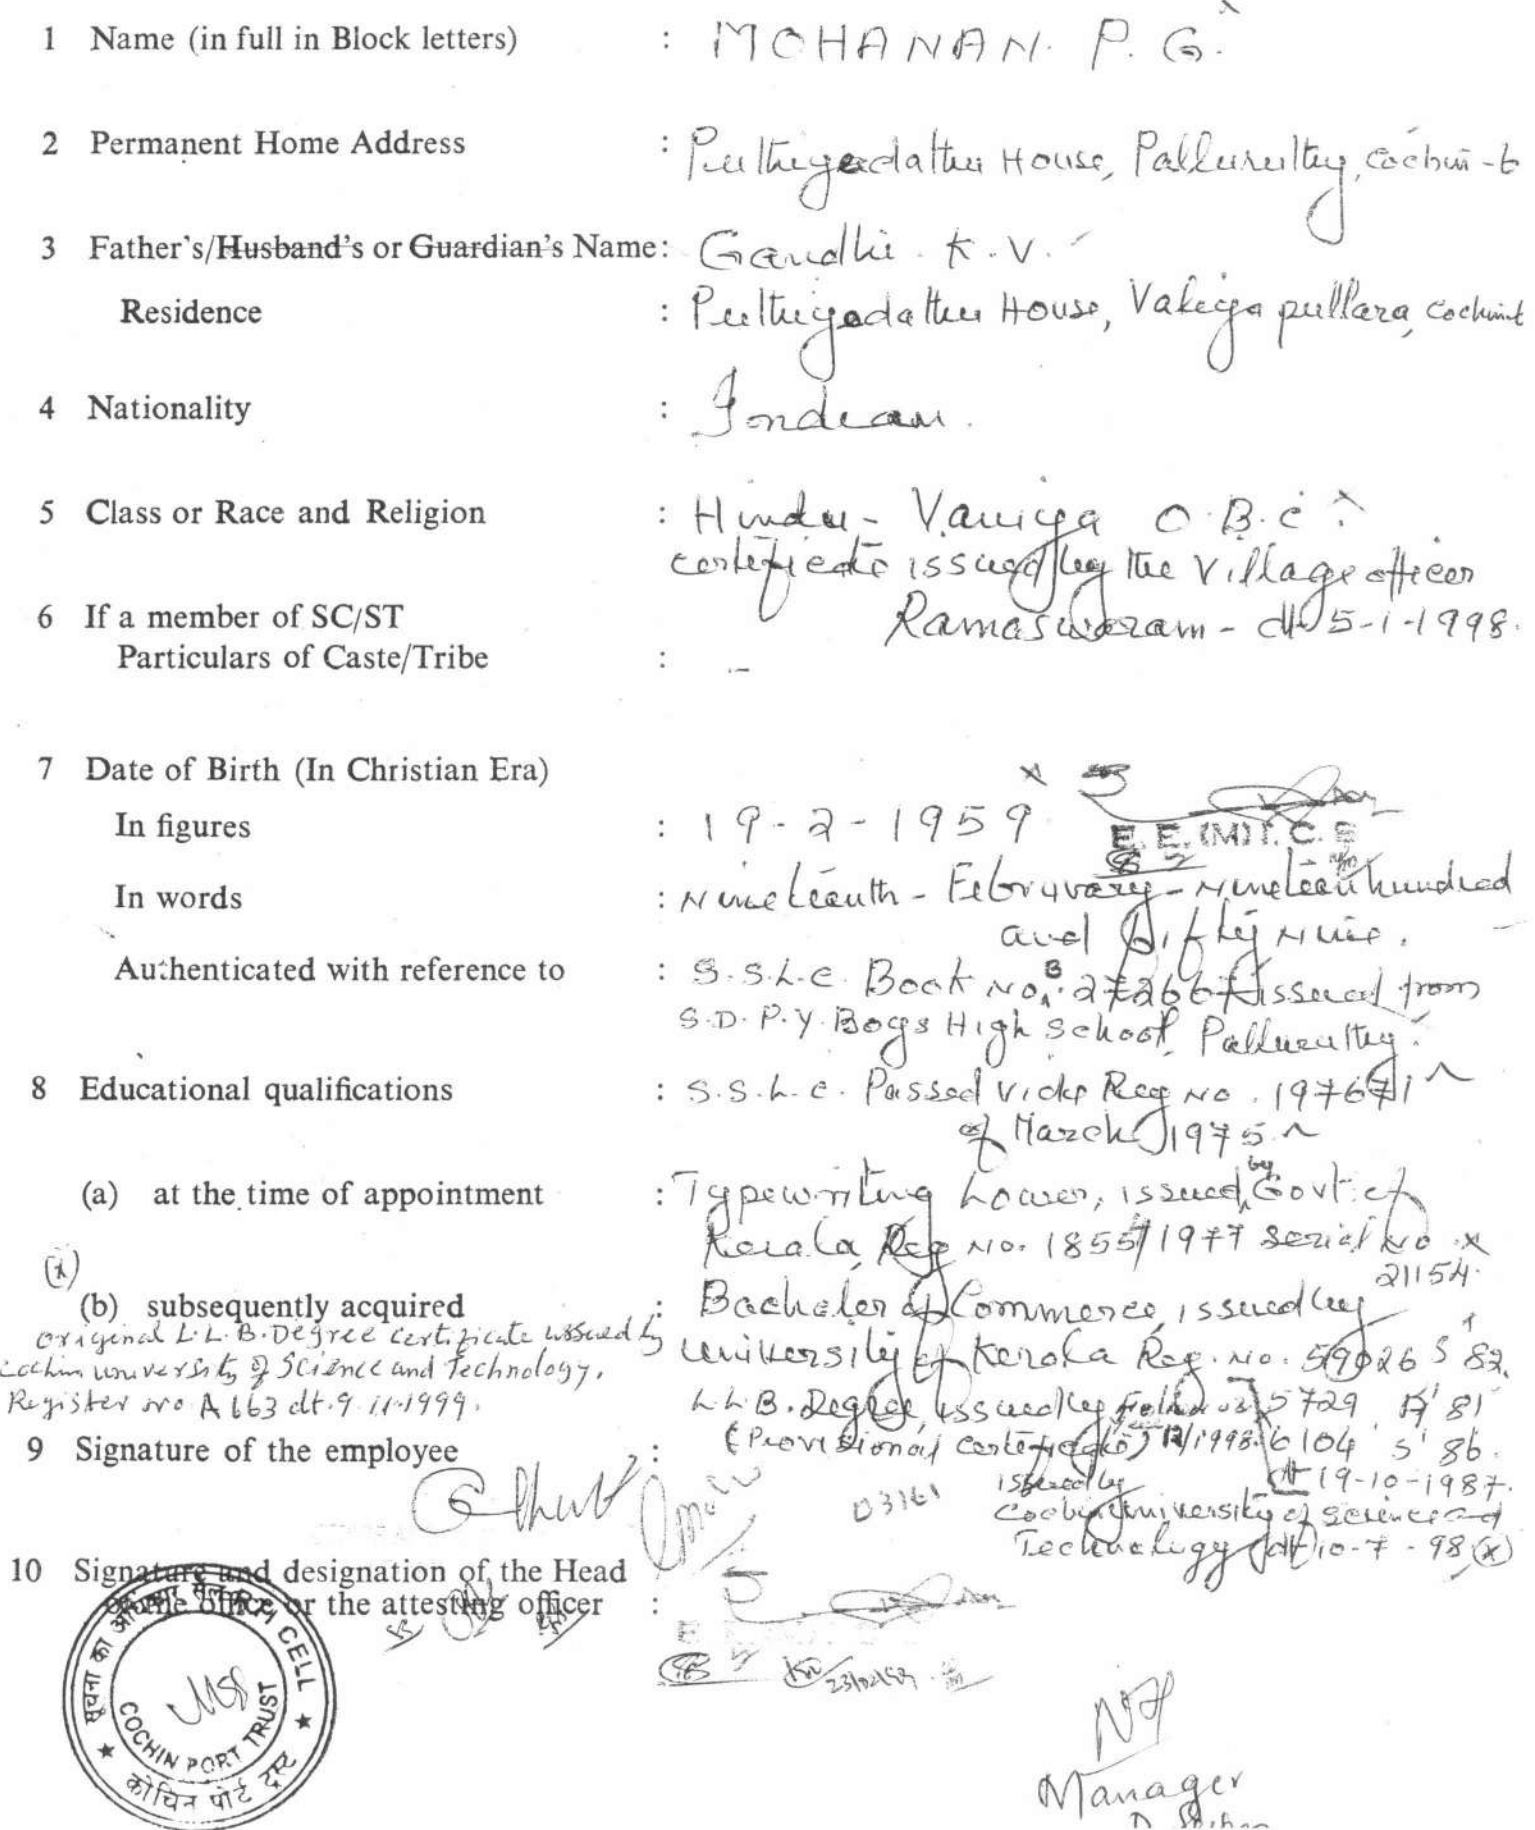 1 Name (in full in Block letters) : MOHANAN. P. G.
2 Permanent Home Address : Puthiyedathu House, Palluruthy, Cochin-6
3 Father's/Husband's or Guardian's Name: Gandhi. K.V.
Residence : Puthiyedathu House, Valiya pullara, Cochin6
4 Nationality : Indian.
5 Class or Race and Religion : Hindu - Vaniya O.B.C.
certificate issued by the Village officer
Rameswaram - dt 5-1-1998.
6 If a member of SC/ST
Particulars of Caste/Tribe : --
7 Date of Birth (In Christian Era)
In figures : 19-2-1959
E. E. (M)
In words : Nineteenth - Februvary - Nineteen hundred
and fifty Nine.
Authenticated with reference to : S.S.L.C. Book No. B 272667 issued from
S.D.P.Y. Boys High School, Palluruthy.
8 Educational qualifications : S.S.L.C. Passed vide Reg No. 197671
of March 1975
(a) at the time of appointment : Typewriting Lower, issued by Govt. of
Kerala, Reg No. 1855/1977 Serial No
21154.
(x)
(b) subsequently acquired : Bachelor of Commerce, issued by
University of Kerala Reg. No. 59026 S' 82.
original L.L.B. Degree certificate issued by
Cochin university of Science and Technology.
Register no A 663 dt. 9.11.1999.
L.L.B. Degree, issued by 5729 A' 81
(Provisional certificate) 12/1998 6104 S' 86.
dt 19-10-1987.
issued by
Cochin University of Science and
Technology dt 10-7-98 (x)
9 Signature of the employee :
D3161
10 Signature and designation of the Head
of the office or the attesting officer :
सूचना का अधिकार सेल RTI CELL
COCHIN PORT TRUST
कोचिन पोर्ट ट्रस्ट
Manager